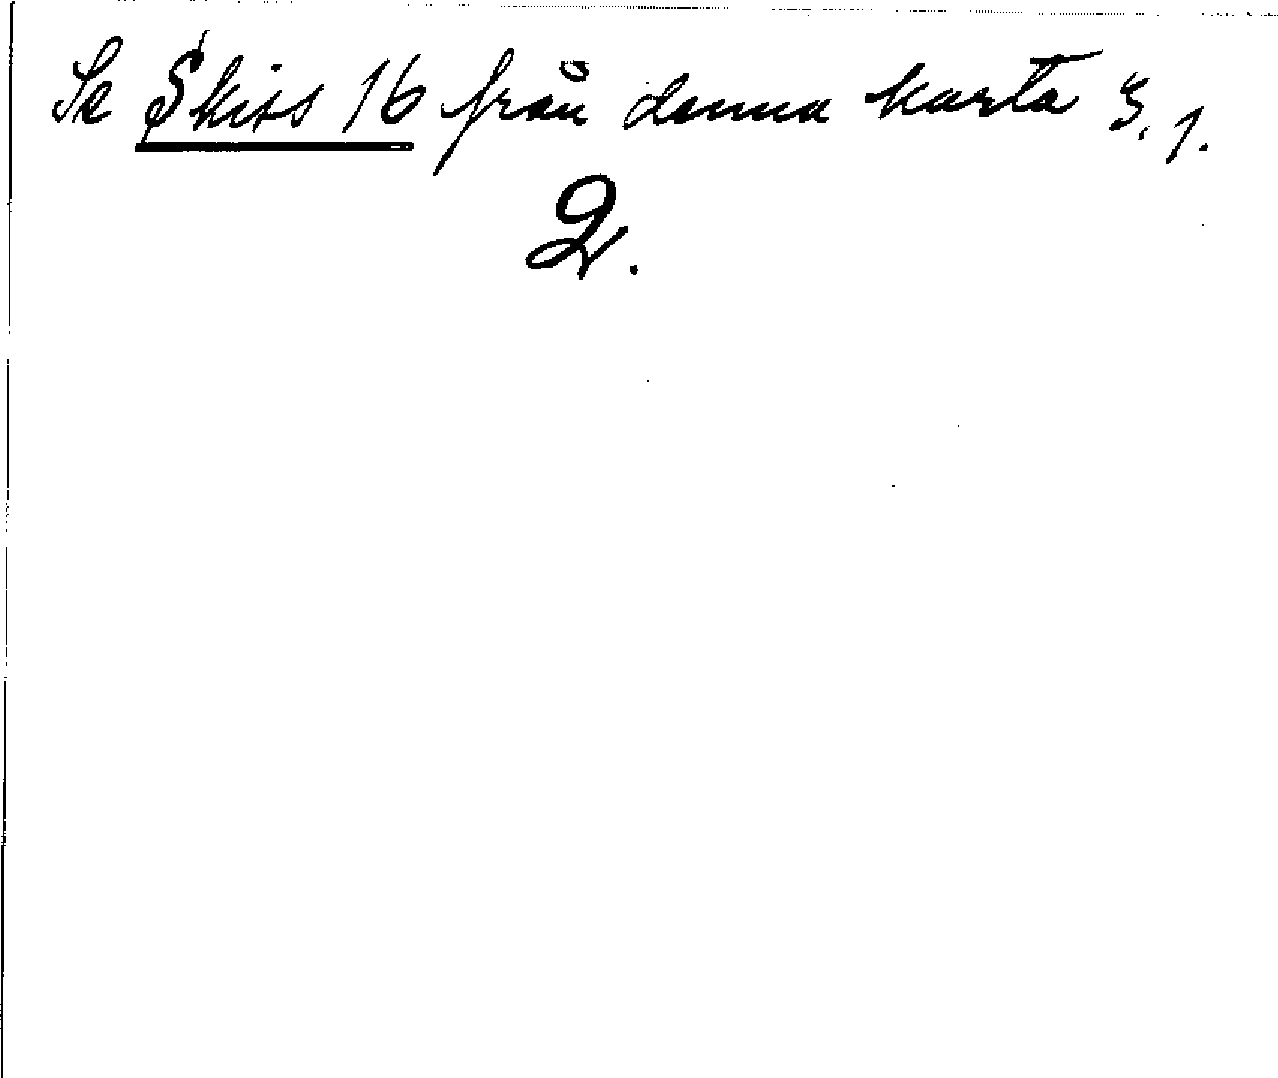 Se Skiss 16 från denna karta 3.1.
2.